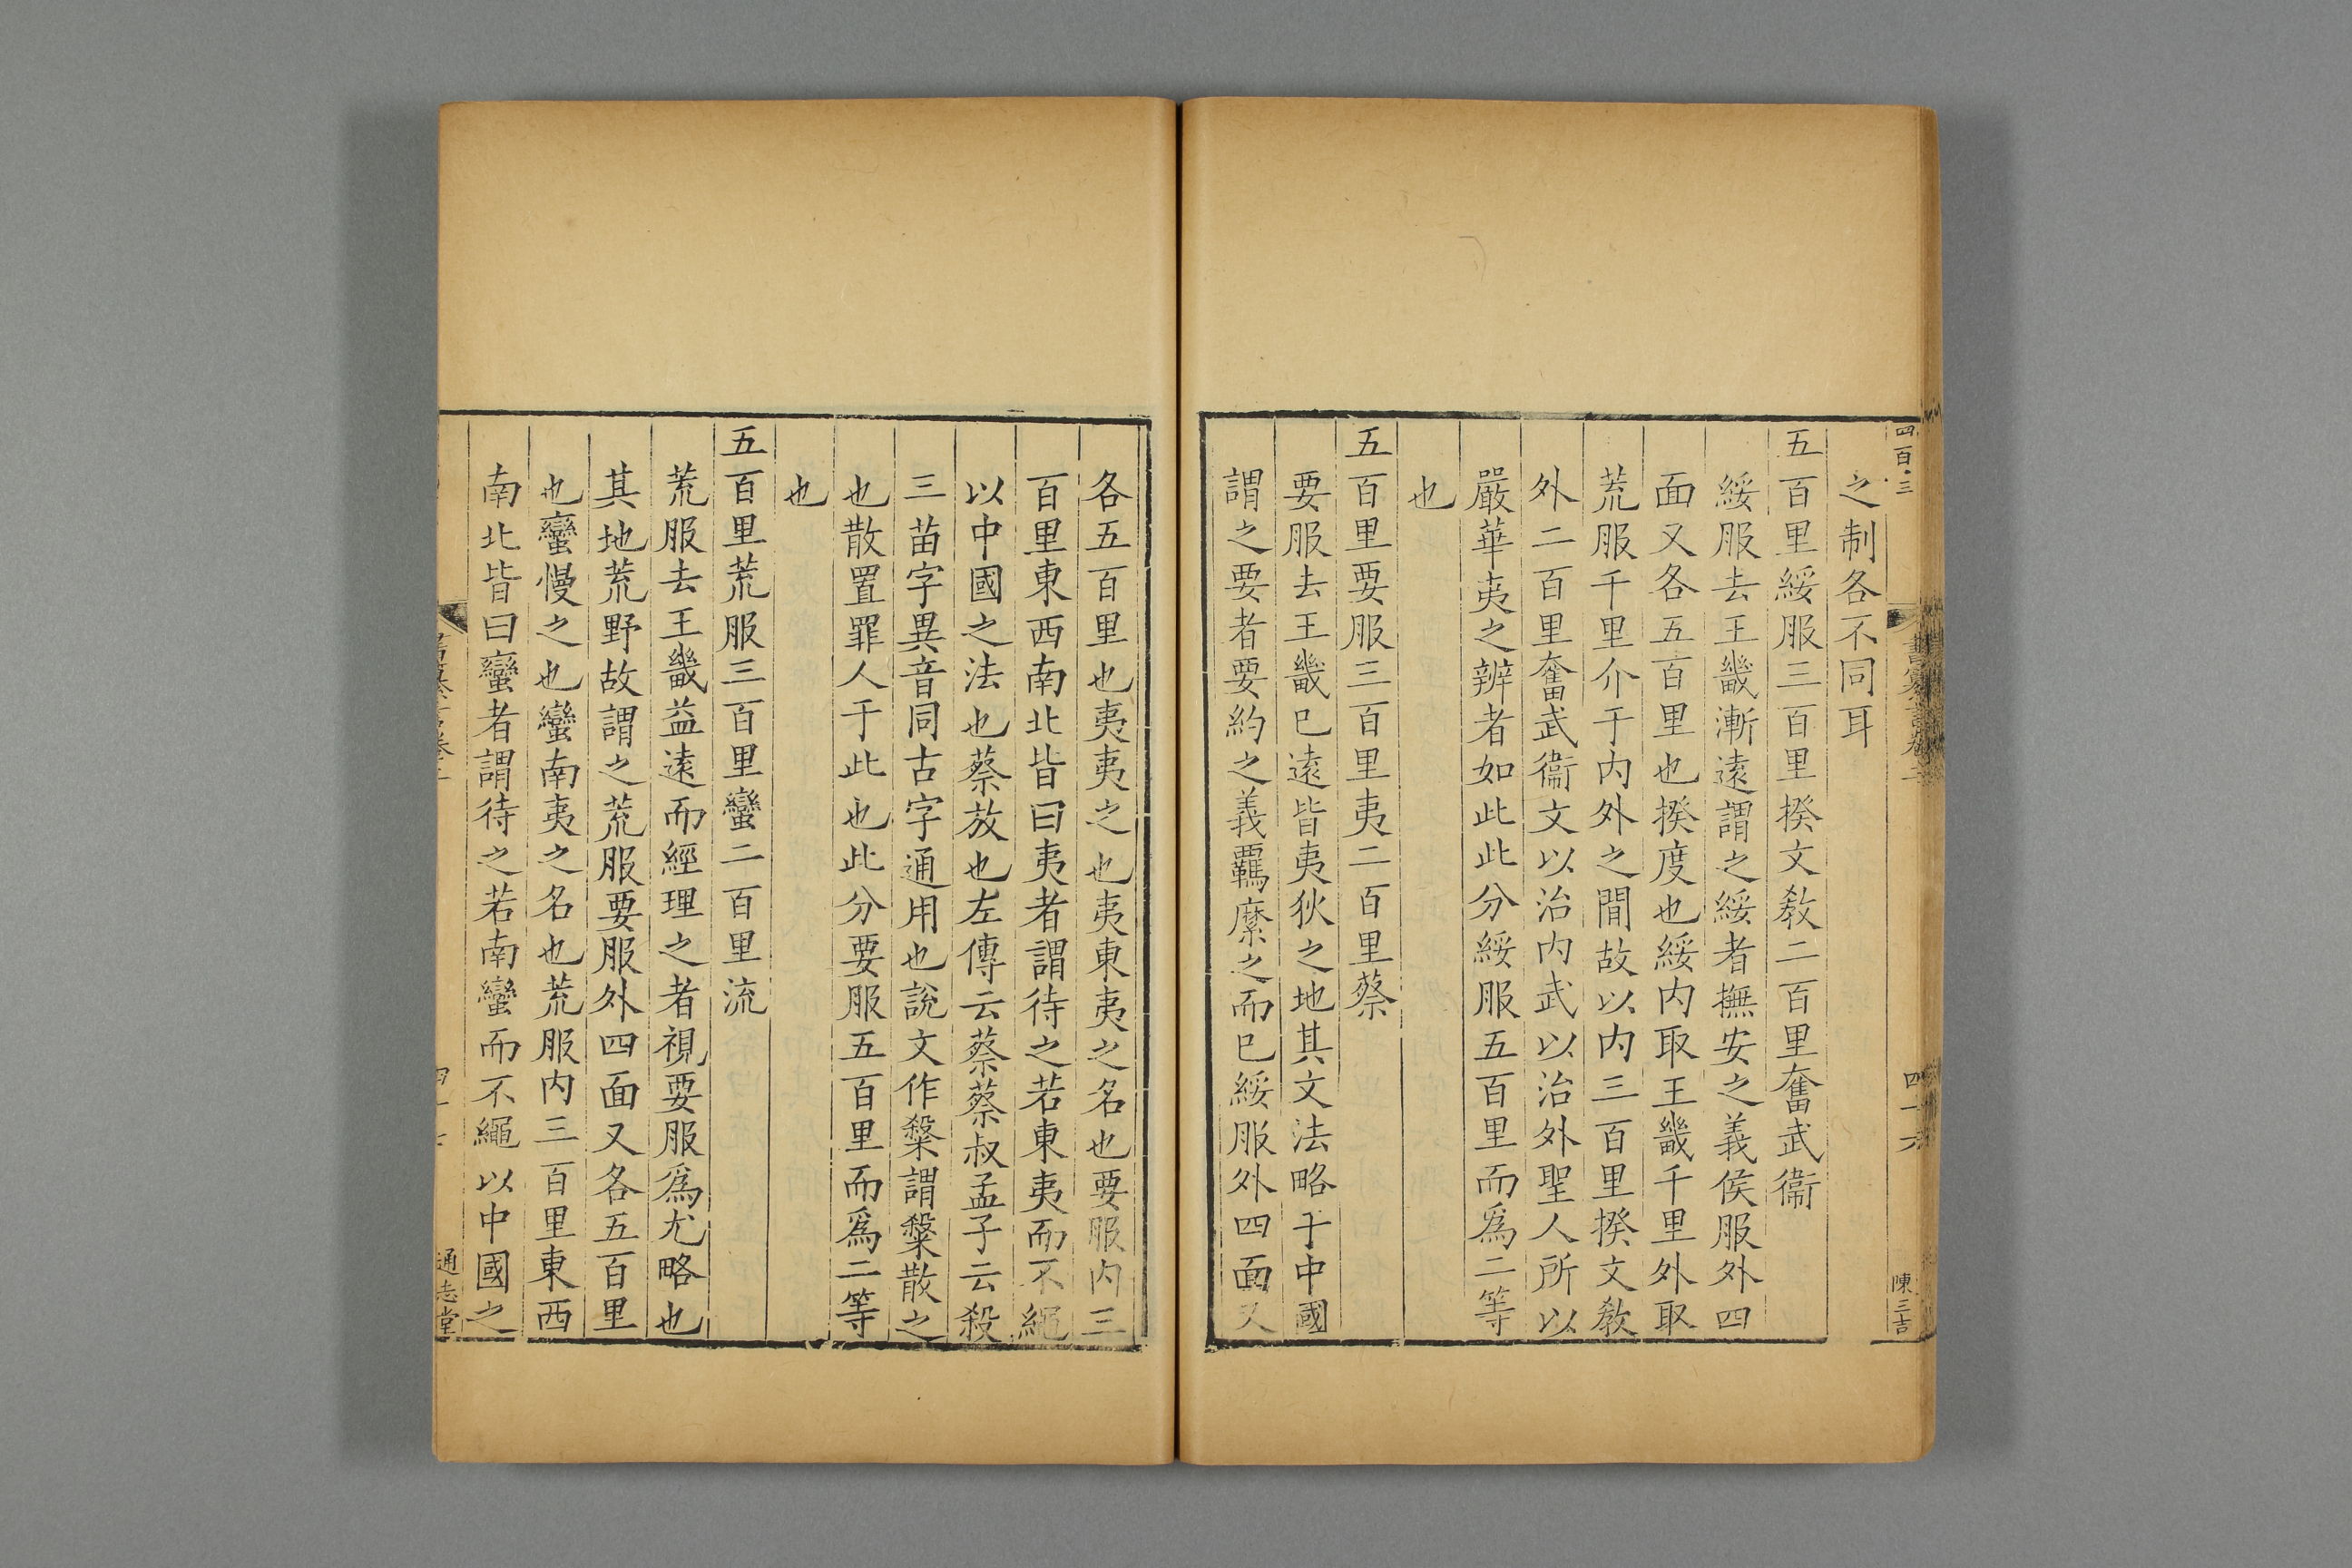 四百三
四十六
陳三吉
之制各不同耳
五百里綏服三百里揆文教二百里奮武衞
綏服去王畿漸遠謂之綏者撫安之義侯服外四
面又各五百里也揆度也綏内取王畿千里外取
荒服千里介于内外之間故以内三百里揆文教
外二百里奮武衞文以治内武以治外聖人所以
嚴華夷之辨者如此此分綏服五百里而爲二等
也
五百里要服三百里夷二百里蔡
要服去王畿已遠皆夷狄之地其文法略于中國
謂之要者要約之義羈縻之而已綏服外四面又
各五百里也夷夷之也夷東夷之名也要服内三
百里東西南北皆曰夷者謂待之若東夷而不繩
以中國之法也蔡放也左傳云蔡蔡叔孟子云殺
三苗字異音同古字通用也說文作𥻦謂𥻦散之
也散置罪人于此也此分要服五百里而爲二等
也
五百里荒服三百里蠻二百里流
荒服去王畿益遠而經理之者視要服爲尤略也
其地荒野故謂之荒服要服外四面又各五百里
也蠻慢之也蠻南夷之名也荒服内三百里東西
南北皆曰蠻者謂待之若南蠻而不繩以中國之
通志堂